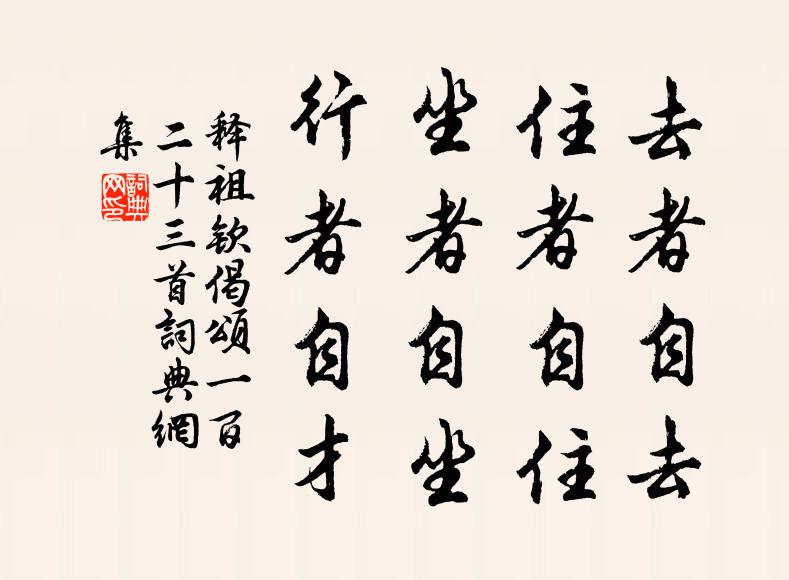 去者自去
住者自住
坐者自坐
行者自才
释祖钦偈颂一百
二十三首詞典網
集
詞典网印